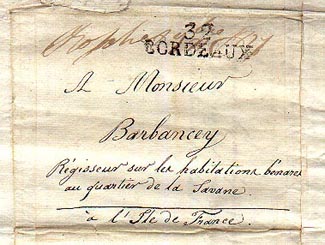 32
BORDEAUX
A Monsieur
Barbancey
Régisseur sur les habitations bénares
au quartier de la Savane.
à l'Isle de France.